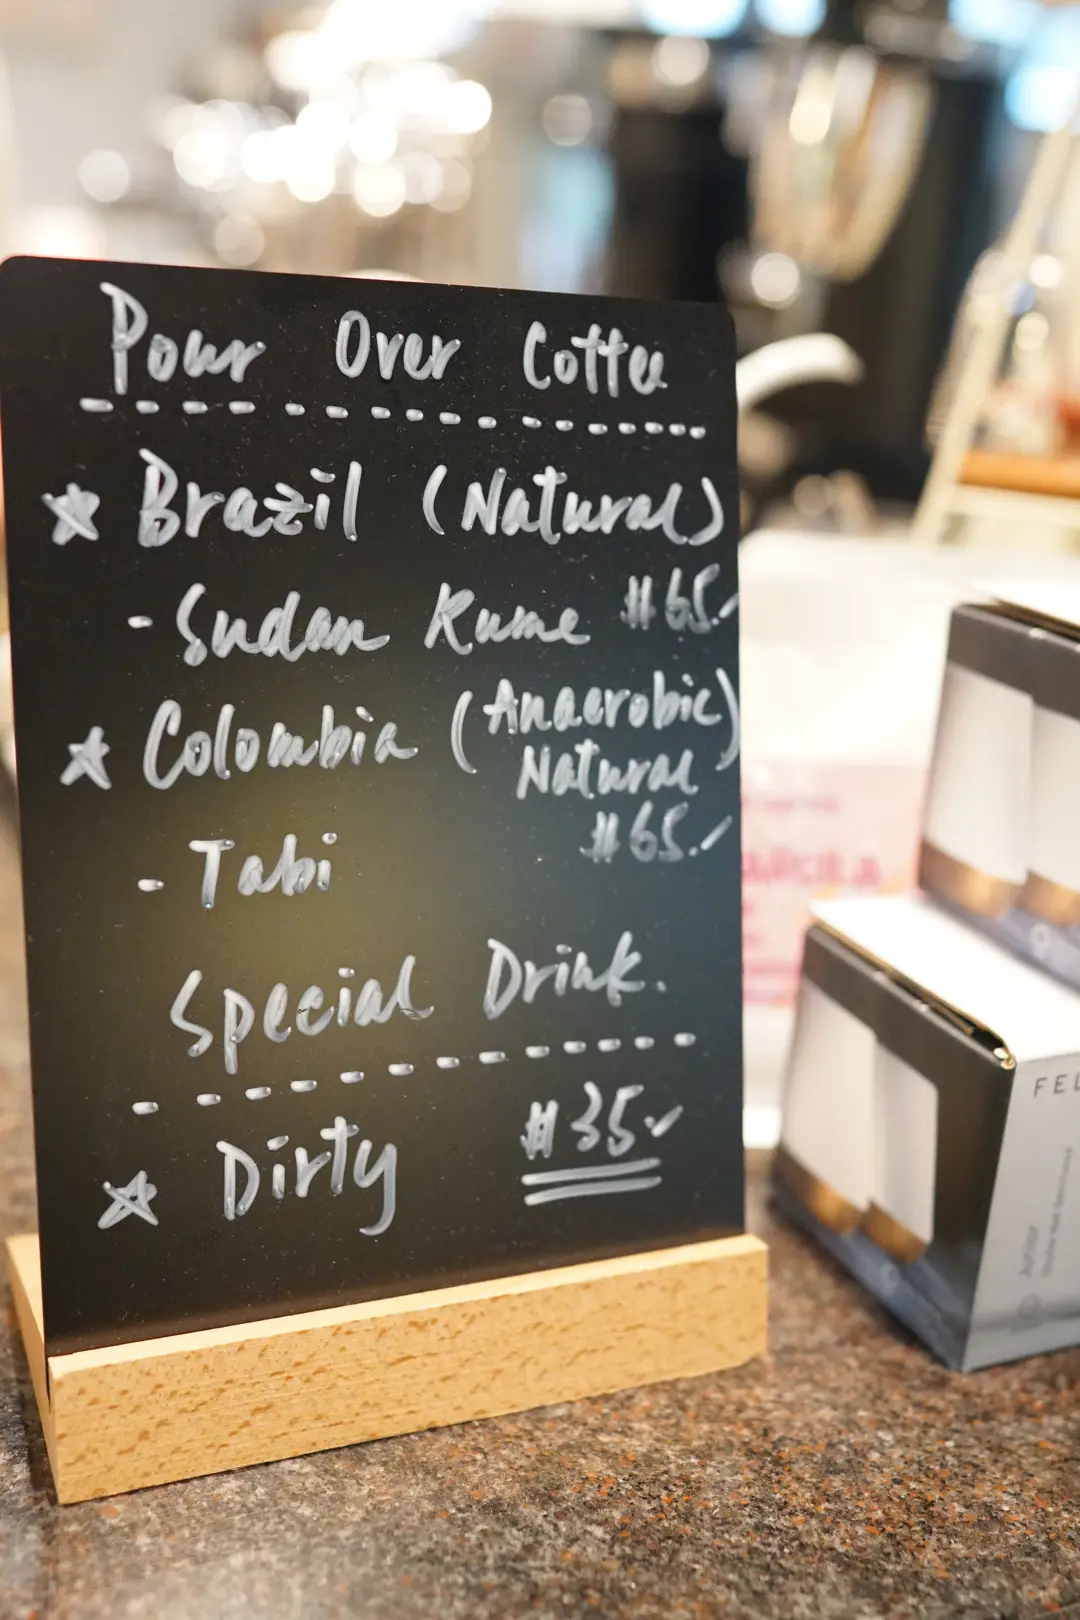 Pour Over Coffee
☆ Brazil (Natural)
- Sudan Rume #65.-
☆ Colombia (Anaerobic
Natural)
#65.-
- Tabi
Special Drink.
☆ Dirty #35.-
FEL
Junior